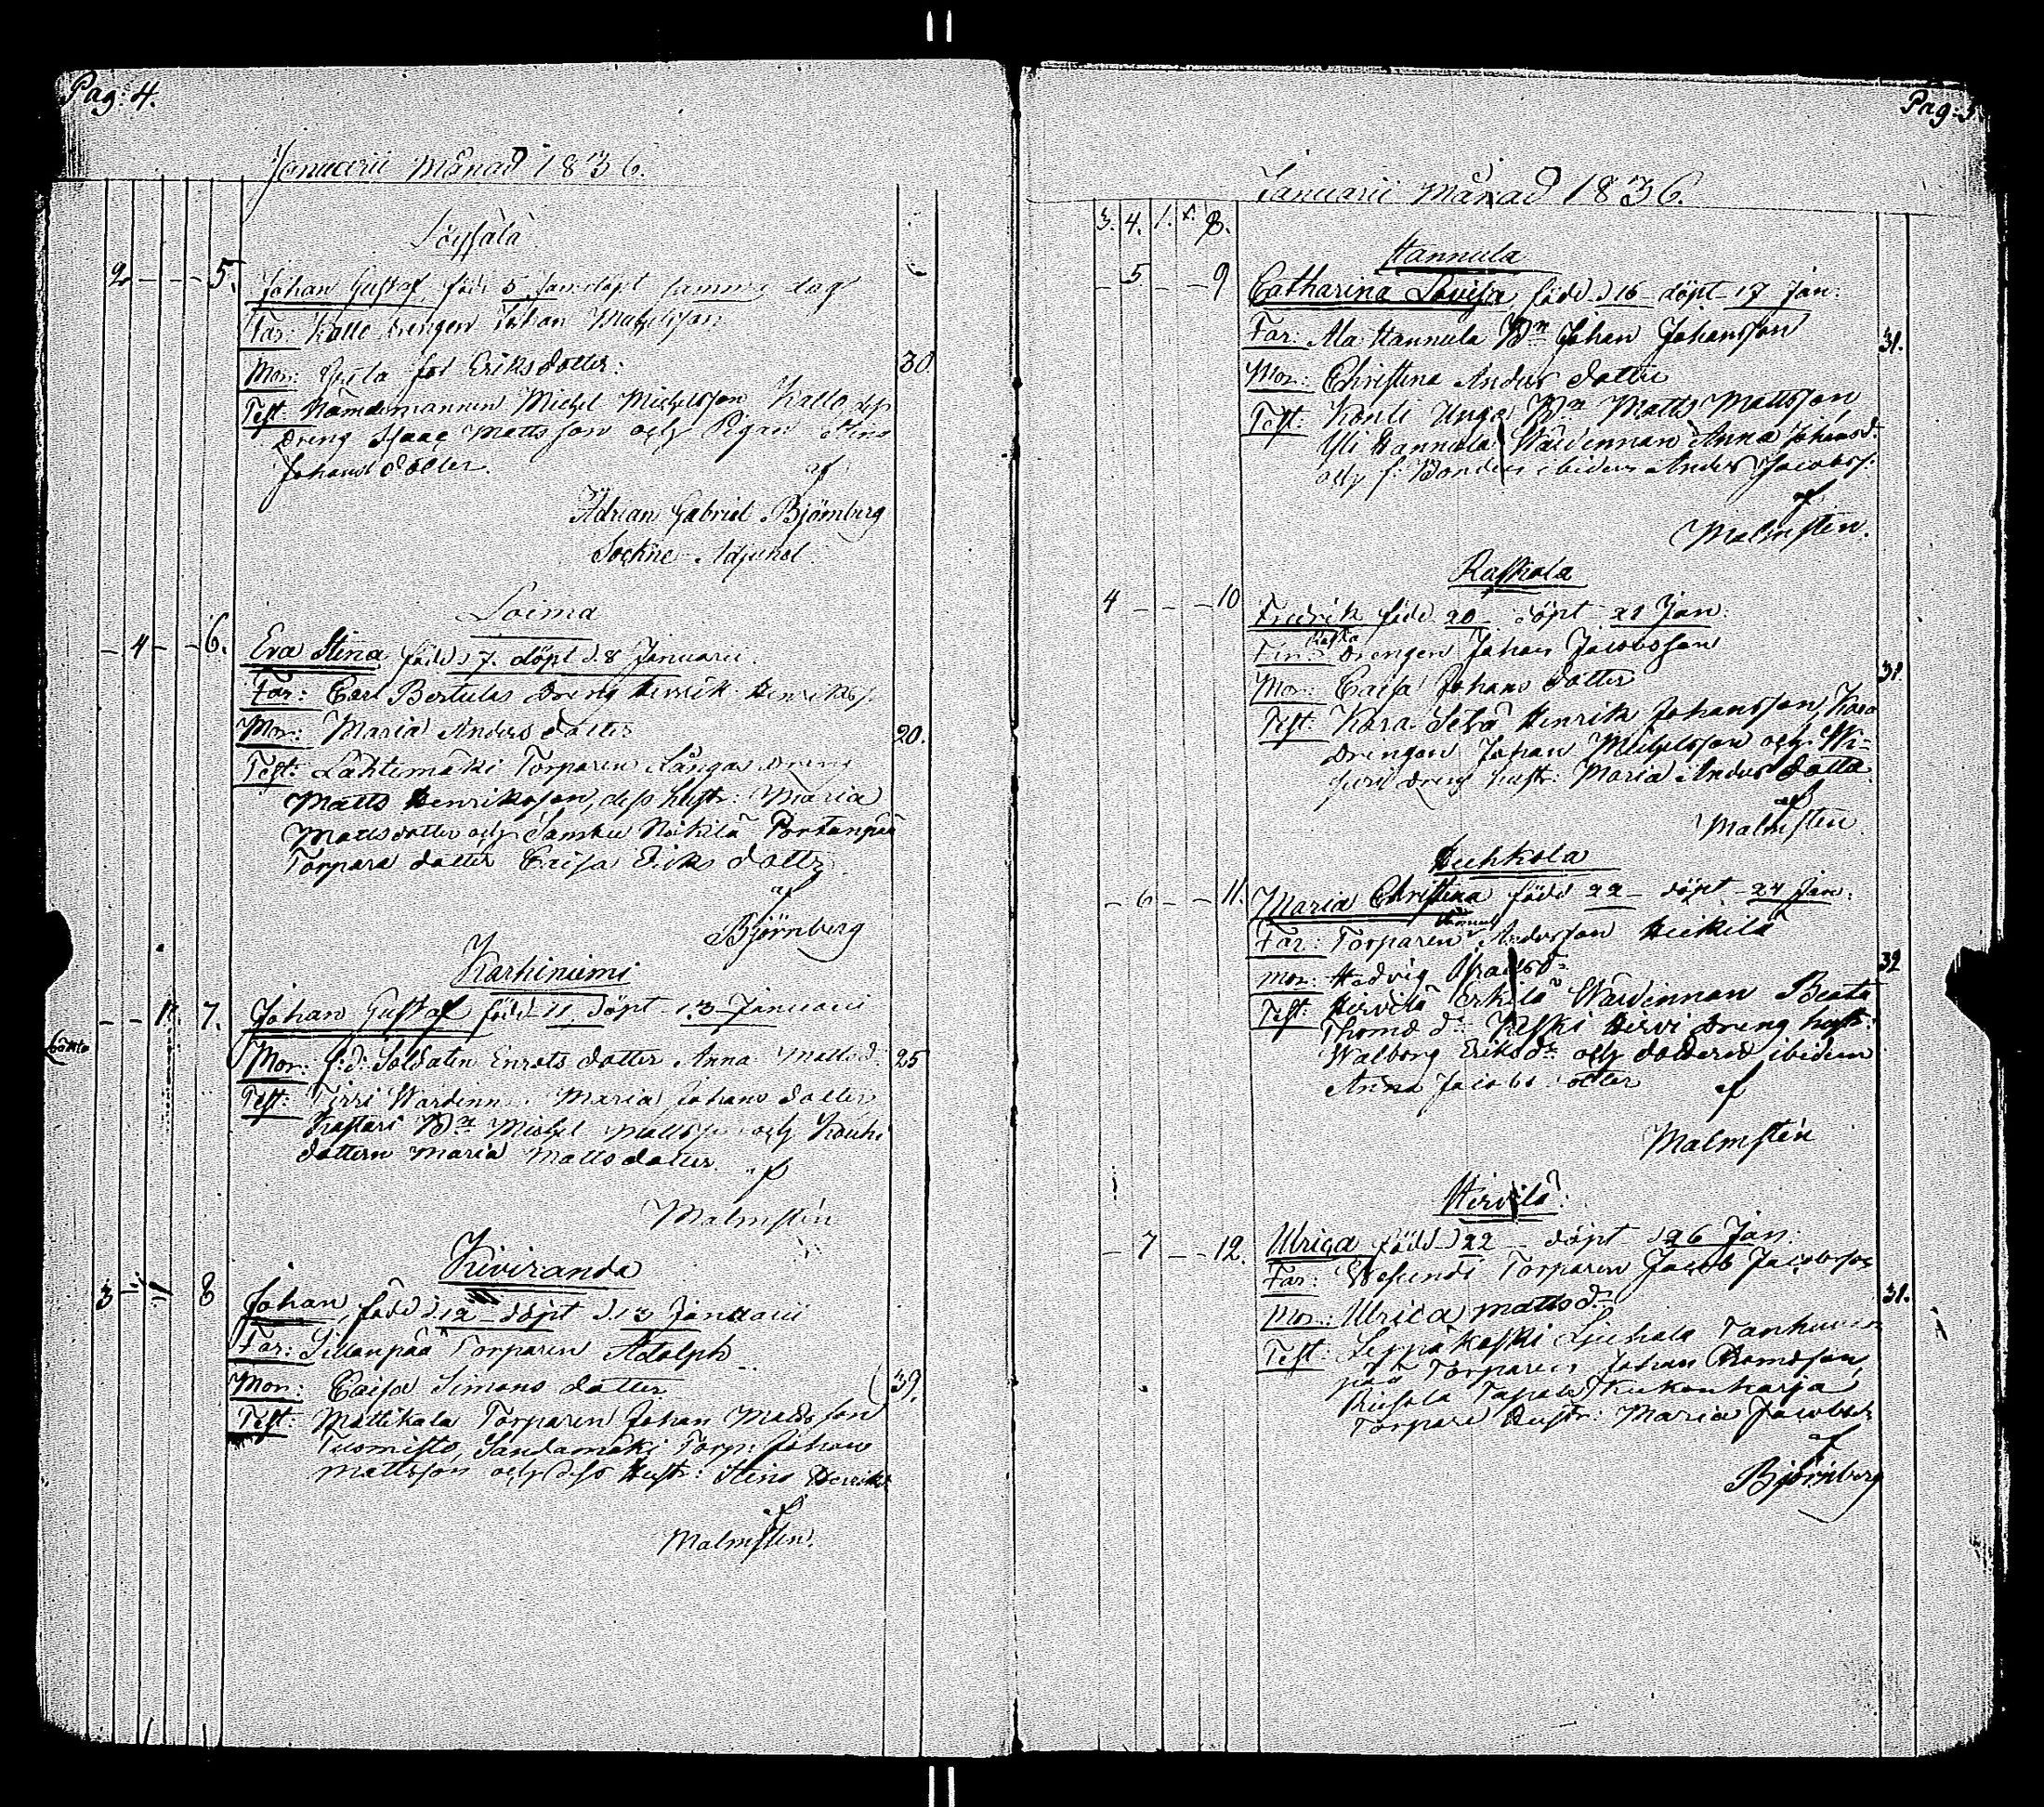 Pag: 4.
Januarii Månad 1836.
2 — — — 5.
Johan Gustaf, född 5 Jan. döpt samma dag
Far: Kallo drengen Johan Michelsson
Mor: Eriksdotter. 30
Test: Nämdemannen Michel Michelsson Kallo, dess
Dreng Isaac Mattsson och Pigan Stina
Johans dotter.
af
Adrian Gabriel Björnberg
Sockne Adjunct.
Loima
— 4 — — 6.
Eva Stina född d. 7. döpt d. 8 Januarii.
Far: Carl Bertulas Dreng Henrik Henrikss.
Mor: Maria Anders dotter 20.
Test: Lähtemäki Torparen Dreng
Matts Henriksson, dess hustr: Maria
Mattsdotter och Nikilä Portanpää
Torpare dotter Caisa Eriks dotter.
af
Björnberg
Karhiniemi
— — 1. 7.
Johan Gustaf född 11 döpt 13 Januarii
oäkta
Mor: f: d: Soldaten Enrots dotter Anna Mattsd. 25
Test: Tirri Wärdinn. Maria Johans dotter
Bn Michel Mattss. och Kouhi
dottern Maria Matts dotter.
af
Malmstén
Kiviranda
3 8
Johan, född d. 12 döpt d. 13 Januarii
Far: Sillanpää Torparen Adolph
Mor: Caisa Simons dotter 39.
Test: Mattikala Torparen Johan Mattsson
Tuomisto, Sandamäki Torp: Johan
Mattsson och dess Hustr: Stina Henriks
af
Malmsten.
Pag: 5
Januarii Månad 1836.
3. 4. 1. 8.
Hannula
— 5 — — 9
Catharina Lovisa född d. 16 döpt 17 Jan:
Far: Ala Hannula Bn Johan Johansson 31.
Mor: Christina Anders dotter
Test: Konti Unge Bn Matts Mattsson,
Yli Hannula Wärdinnan Anna Johansd.
och f: Bonden ibidem Anders Jacobss:
af
Malmsten.
Raskala
4 — — — 10
Fredrik född 20 döpt 21 Jan:
Far: drengen Johan Jacobsson
Mor: Caisa Johans dotter 31.
Test: Kara Henrik Johansson, Kara
Drengen Johan Michelsson och
dreng hustr: Maria Anders dotter
af
Malmsten
Huhkola
— 6 — — 11.
Maria Christina född 22 döpt 24 Jan:
Far: Torparen Andersson Heikilä
Mor: Hedvig 32
Test: Hirvilä Erkilä Wärdinnan Beata
Thoms d: Keski Hirvi Dreng hustr:
Walborg Eriksd: och dottren ibidem
Anna Jacobs dotter
af
Malmstén
Hirvilä
— 7 — — 12.
Ulrica född d 22 döpt d 26 Jan:
Far: Torparen Jacob Jacobsson
Mor: Ulrica Mattsd: 31.
Test: Leppäkoski Tanhuan
pää Torparen Johan Thomsson,
Kukonharja
Torpare Hustr: Maria Jacobsd:
af
Björnberg